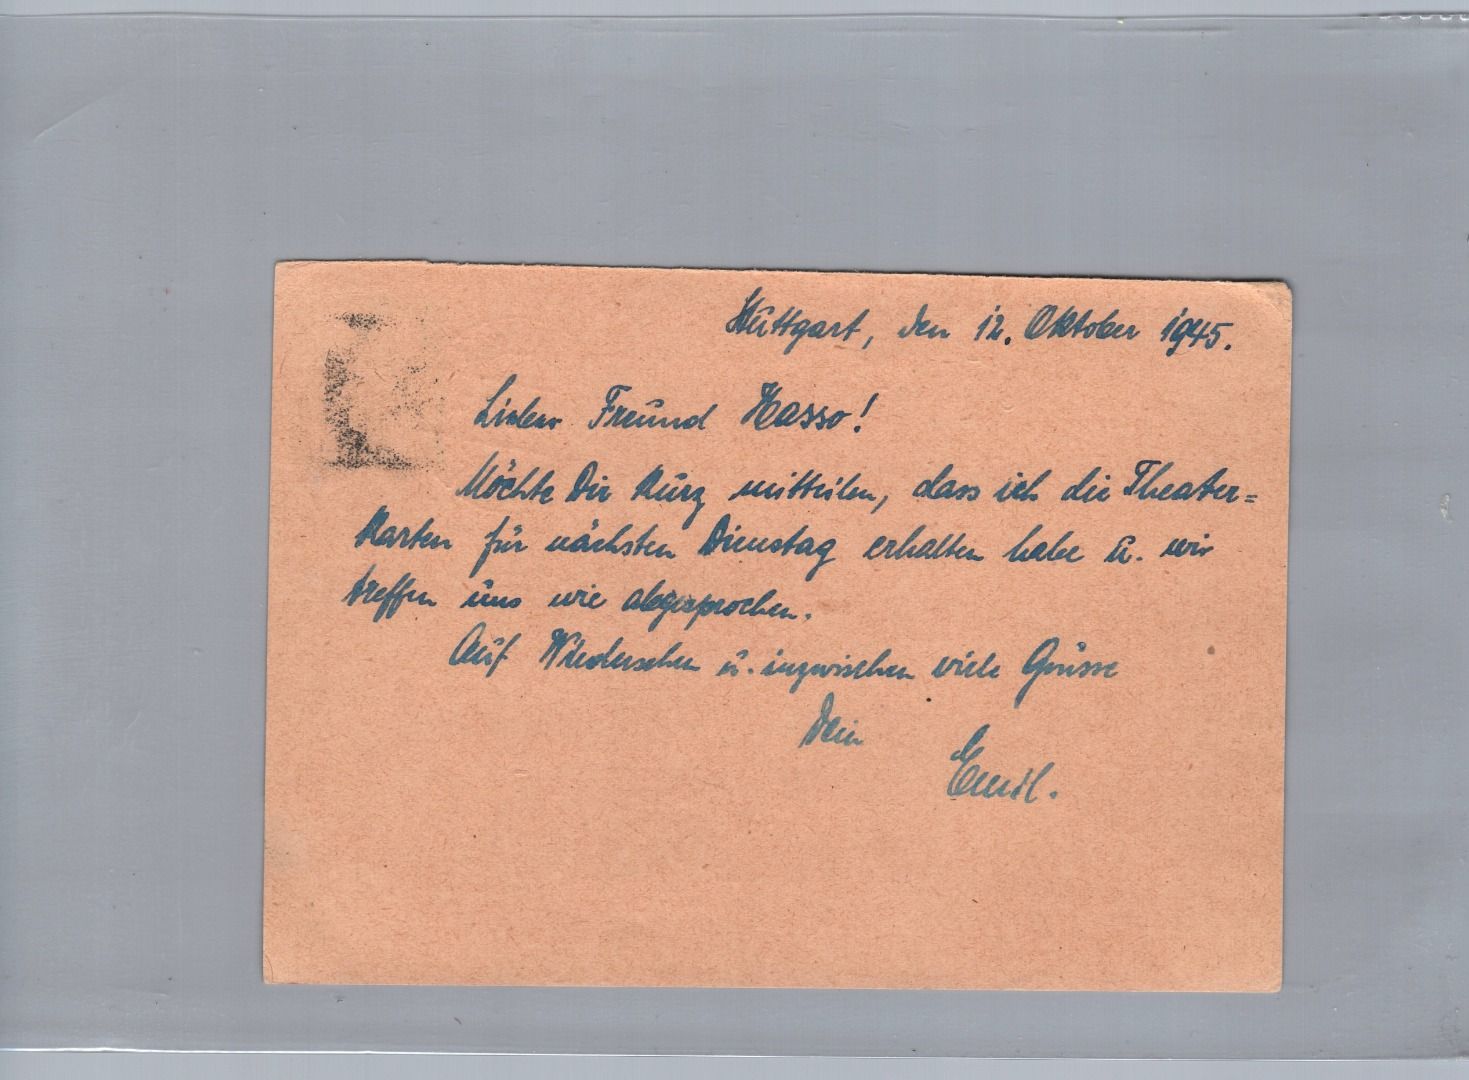 Stuttgart, den 12. Oktober 1945.
Lieber Freund Hasso!
Möchte Dir kurz mitteilen, dass ich die Theater=
karten für nächsten Dienstag erhalten habe u. wir
treffen uns wie abgesprochen.
Auf Wiedersehen u. inzwischen viele Grüsse
Dein
Emil.